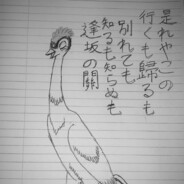 是れやこの
行くも歸るも
別れても
知るも知らぬも
逢坂の關